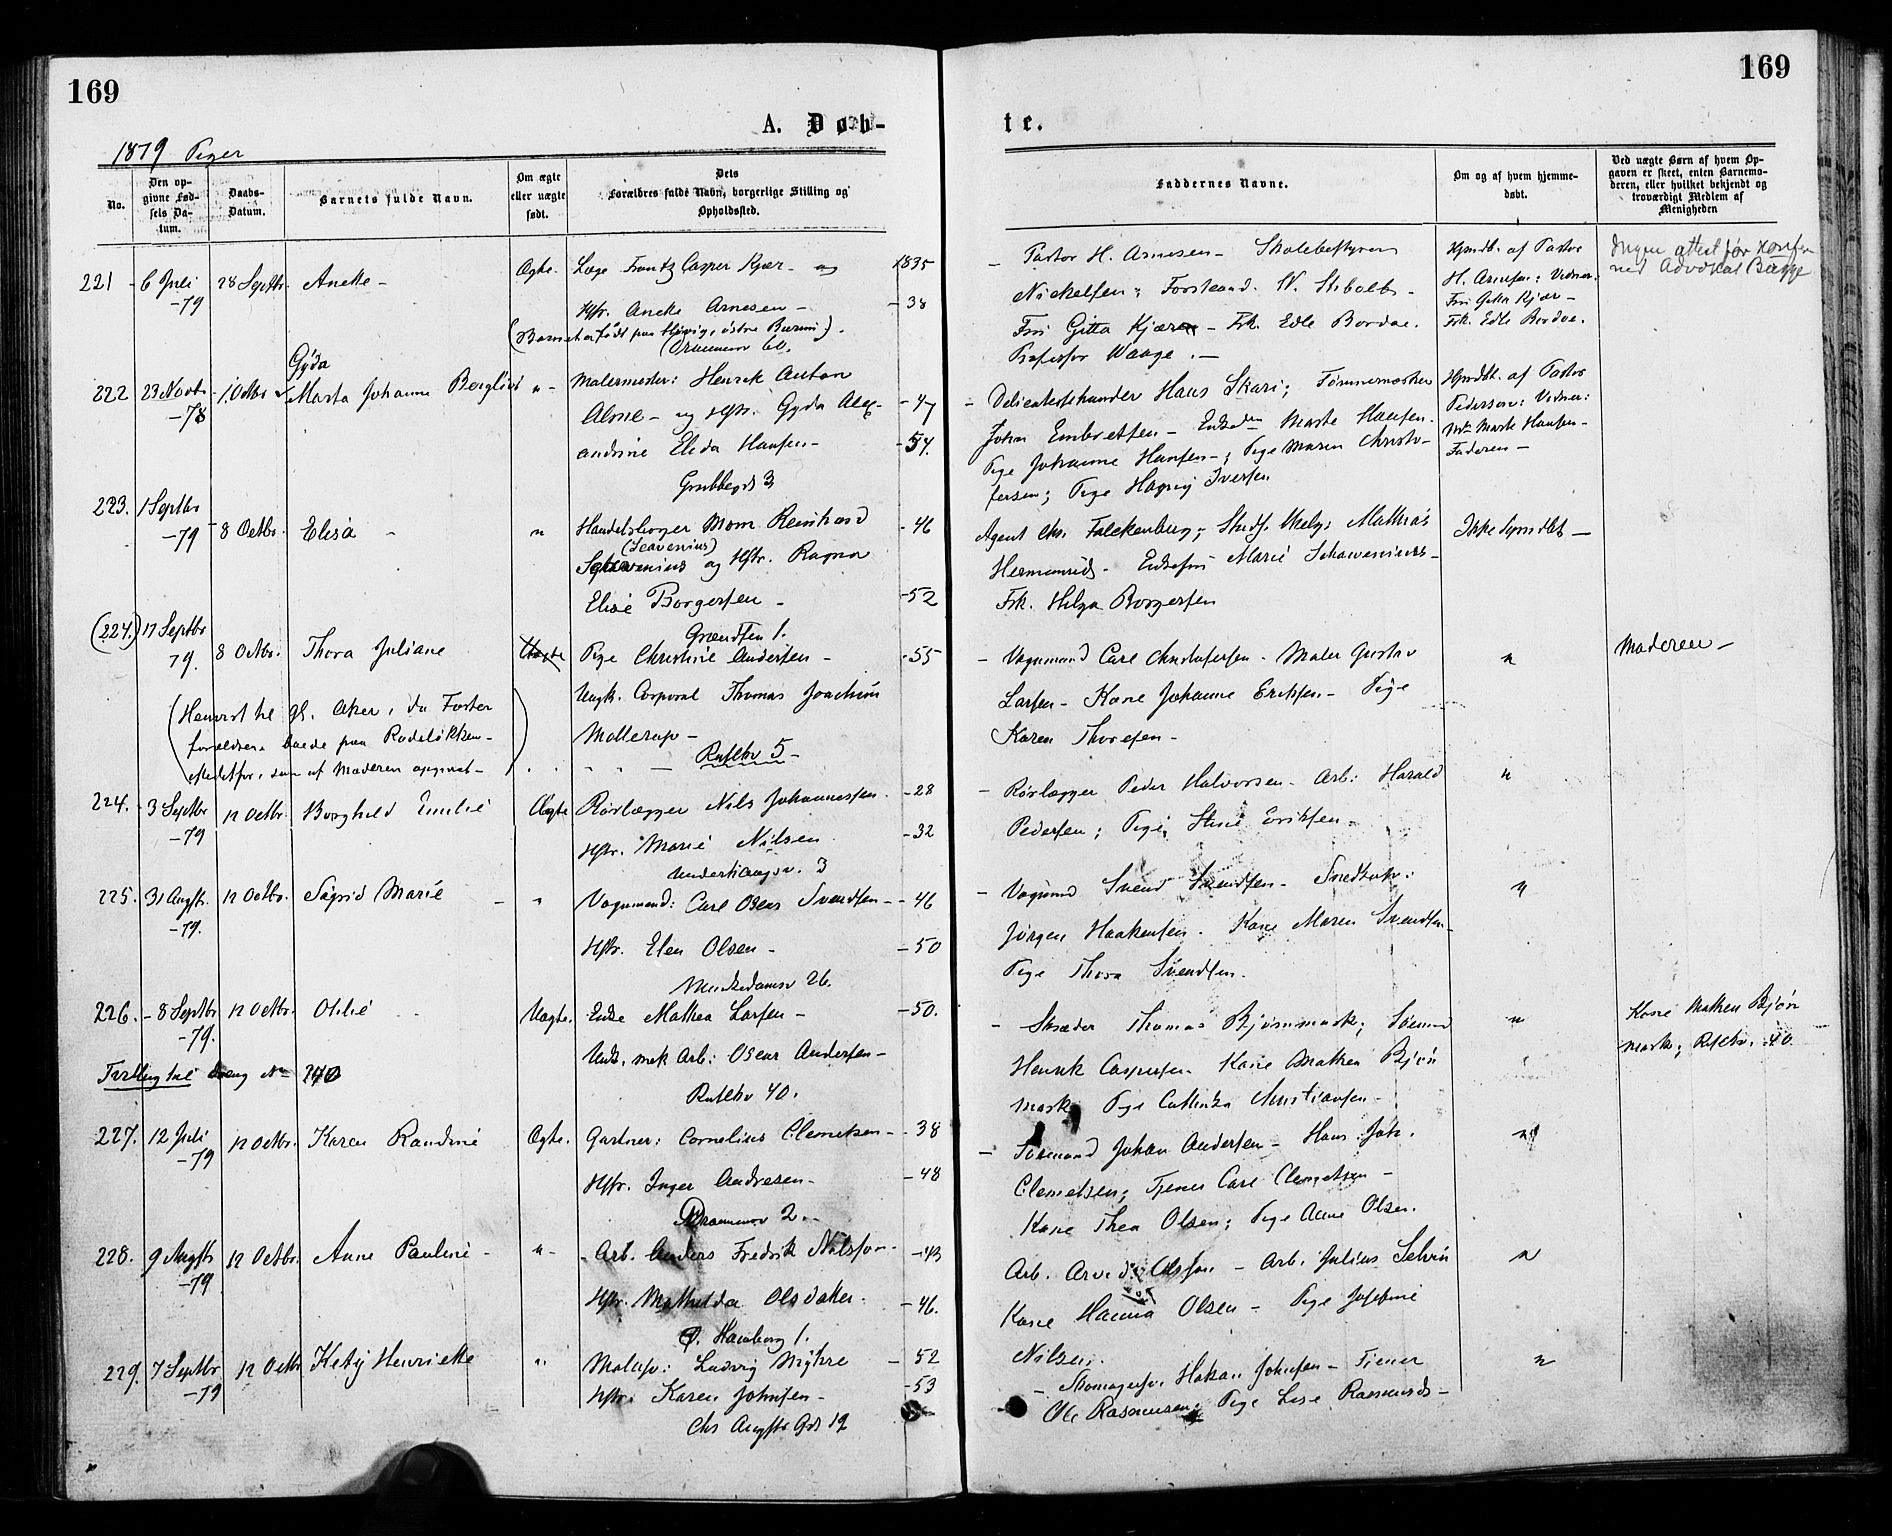 169
169
A. Døb-
te.
1879 Piger
No.
Den op-
givne Fød-
sels Da-
tum.
Daabs-
Datum.
Barnets fulde Navn.
Om ægte
eller uægte
født.
Dets
Forældres fulde Navn, borgerlige Stilling og
Opholdssted.
Faddernes Navne.
Om og af hvem hjemme-
døbt.
Ved uægte Børn af hvem Op-
gaven er skeet, enten Barnemo-
deren, eller hvilket bekjendt og
troværdigt Medlem af
Menigheden
221 6 Juli
-79
28 Septbr. Aneke -
Ægte. Læge Frantz Casper Kjær - og 1835
Hstr. Aneke Arnesen - - 38
(Barnet er født paa Høvig, østre Bærum).
Drammensv 60.
- Pastor H. Arnesen - Skolebestyrer
Nickelsen; Forstand. N. Stibolt -
Fru Gitta Kjær - Frk. Edle Bordoe.
Professor Waage. -
Hjmdbt. af Pastor
H. Arnesen; Vidner:
Fru Gitta Kjær -
Frk. Edle Bordoe.
Ingen attest før
ved Advokat Bugge
222 23 Novbr.
-78
1 Octbr
Gyda
Marta Johanne Bergliot
" - Malermester: Henrik Anton
Alme - og Hstr. Gyda Alex- - 47
andrine Elida Hansen - - 54.
Grubbegd 3
- Delicatessehandler Hans Skari; Tømmermester
Johan Embretsen - Enkden Marte Hansen.
Pige Johanne Hansen -; Pige Maren Christo-
fersen; Pige Hagny Iversen
Hjmdbt. af Pastor
Pedersen: Vidner:
Marte Hansen -
Faderen -
223. 1 Septbr
-79
8 Octbr. Elisa -
" Handelsborger Mom Reinhard - 46
(Scavenius)
Schavenius og Hstr. Ragna
Elise Borgersen - - 52
Grændsen 1.
Agent Chr. Falckenberg; Stud. Helge Mathias
Hermanrud. - Enkefru Marie Schavenius -
Frk. Helga Borgersen
Ikke hjmdbt -
(224.) 17 Septbr
79.
8 Octbr. Thora Juliane
Uægte Pige Christine Andersen - - 55
Ungk. Corporal Thomas Joachim
Mollerup -
Rufelbv 5 -
(Henvist til gl. Aker, da Foster
forældrene boede paa Rodeløkken -
istedetfor, som af Moderen opgivet -)
- Vognmand Carl Christofersen - Maler Gustav
Larsen - Kone Johanne Eriksen - Pige
Karen Thoresen -
"
Moderen -
224. 3 Septbr
-79
12 Octbr. Borghild Emilie
Ægte Rørlægger Nils Johannessen - - 28
Hstr. Marie Nilsen - 32
Underhaugsv. 3
- Rørlægger Peder Halvorsen - Arb: Harald
Pedersen; Pige Stine Eriksen -
"
225. 31 Augst.
-79.
12 Octbr. Sigrid Marie -
" Vognmand: Carl Oscar Svendsen - - 46
Hstr. Elen Olsen - - 50
Munkedamsv 26.
- Vognmd Svend Svendsen - Snedker:
Jørgen Haakensen. Kone Maren Svendsen -
Pige Thora Svendsen.
"
226. - 8 Septbr
-79.
12 Octbr. Otilie
Uægte. Enke Mathea Larsen - - 50.
Unk. mek Arb: Oscar Andersen -
Rufelbv 40.
Tvilling til Dreng No 240
- Skræder Thomas Bjørnmark; Sømd
Henrik Caspersen Kone Mathea Bjørn
mark Pige Cathinka Christiansen -
"
Kone Mathea Bjørn
mark; Rfelbv. 40.
227. 12 Juli
-79
12 Octbr. Karen Randine
Ægte. Gartner: Cornelius Clemetsen - - 38
Hstr. Inger Andresen - - 48
Drammensv 2. -
- Sømand Johan Andersen - Hans Joh.
Clemetsen; Tjener Carl Clemetsen -
Kone Thea Olsen; Pige Anne Olsen.
"
228. 9 Augstr
-79
12 Octbr. Anne Pauline -
" - Arb. Anders Fredrik Nilsson - - 43
Hstr. Mathilda Olsdatter - - 46.
P. Hamborg 1.
Arb. Arvid Olsson - Arb. Julius Selvin
Kone Hanna Olsen - Pige Josefine
Nilsen.
"
229. 7 Septbr
-79
12 Octbr Ketty Henriette
" Malersv: Ludvig Myhre - 52
Hstr. Karen Johnsen - - 53
Chr Augsts Gd 19
- Skomagersv. Hakan Johnsen - Tjener
Ole Rasmussen; Pige Lise Rasmusd -
"